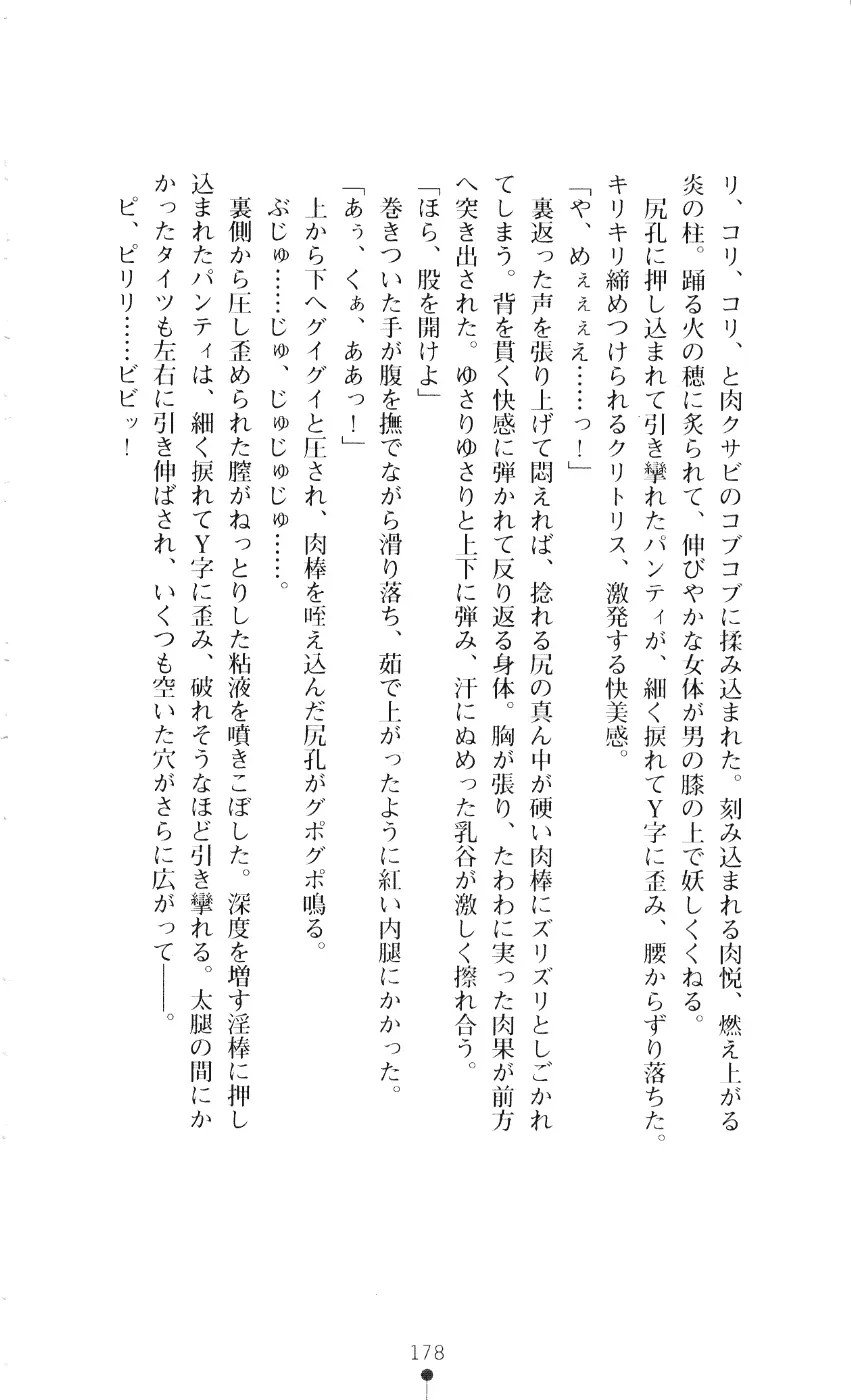 リ、コリ、コリ、と肉クサビのコブコブに揉み込まれた。刻み込まれる肉悦、燃え上がる
炎の柱。踊る火の穂に炙られて、伸びやかな女体が男の膝の上で妖しくくねる。
尻孔に押し込まれて引き攣れたパンティが、細く捩れてＹ字に歪み、腰からずり落ちた。
キリキリ締めつけられるクリトリス、激発する快美感。
「や、めぇぇぇえ……っ！」
裏返った声を張り上げて悶えれば、捻れる尻の真ん中が硬い肉棒にズリズリとしごかれ
てしまう。背を貫く快感に弾かれて反り返る身体。胸が張り、たわわに実った肉果が前方
へ突き出された。ゆさりゆさりと上下に弾み、汗にぬめった乳谷が激しく擦れ合う。
「ほら、股を開けよ」
巻きついた手が腹を撫でながら滑り落ち、茹で上がったように紅い内腿にかかった。
「あぅ、くぁ、ああっ！」
上から下へグイグイと圧され、肉棒を咥え込んだ尻孔がグポグポ鳴る。
ぶじゅ……じゅ、じゅじゅじゅ……。
裏側から圧し歪められた膣がねっとりした粘液を噴きこぼした。深度を増す淫棒に押し
込まれたパンティは、細く捩れてＹ字に歪み、破れそうなほど引き攣れる。太腿の間にか
かったタイツも左右に引き伸ばされ、いくつも空いた穴がさらに広がって――。
ピ、ピリリ……ビビッ！
178